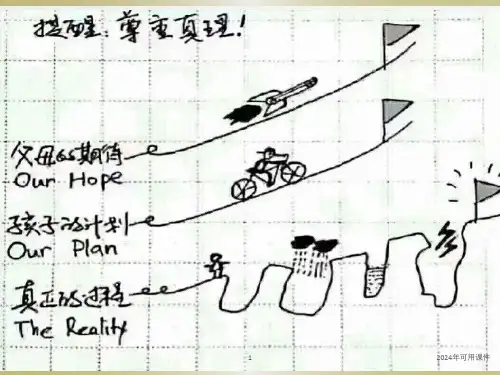 提醒：尊重真理！
父母的期待
Our Hope
孩子的计划
Our Plan
真正的过程
The Reality
1
2024年可用课件